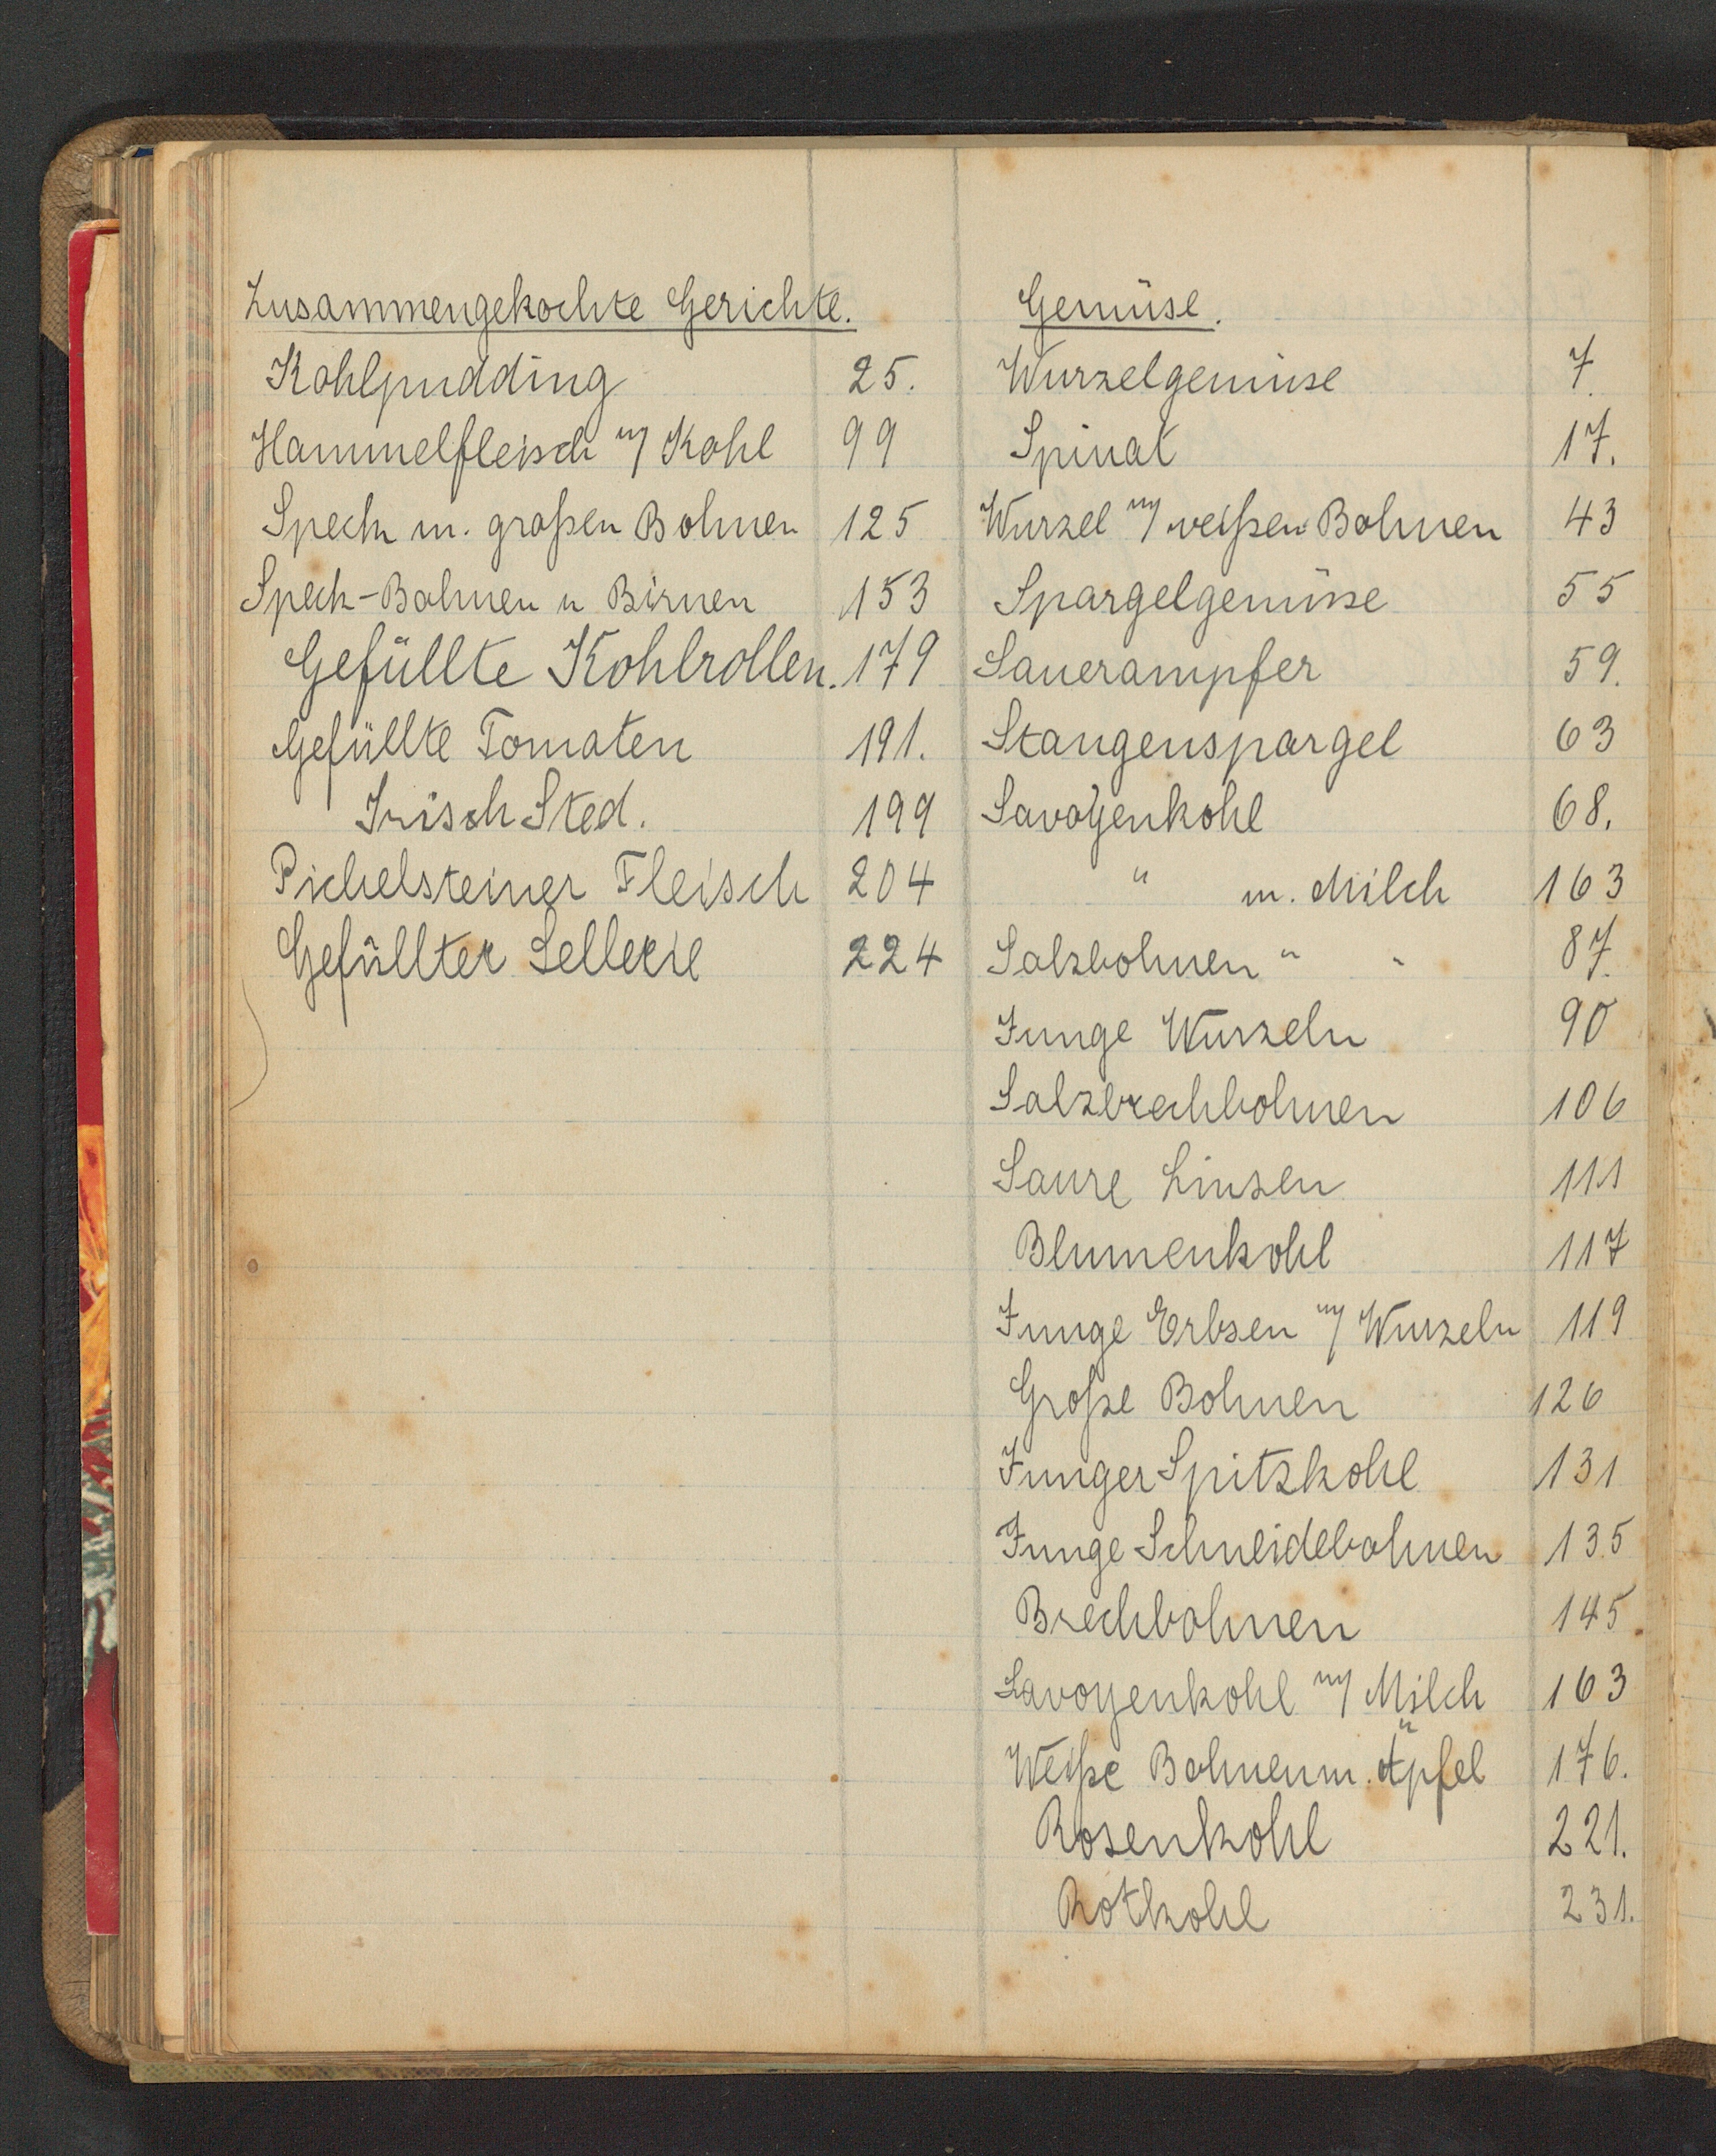 Zusammengekochte Gerichte.
Kohlpudding 25.
Hammelfleisch m/ Kohl 99
Speck m. großen Bohnen 125
Speck-Bohnen u Birnen 153
Gefüllte Kohlrollen. 179
Gefüllte Tomaten 191.
Irisch Sted. 199
Pichelsteiner Fleisch 204
Gefüllter Sellerie 224
Gemüse.
Wurzelgemüse 7.
Spinat 17.
Wurzel m/ weißen Bohnen 43
Spargelgemüse 55
Sauerampfer 59.
Stangenspargel 63
Savoyenkohl 68.
" m. Milch 163
Salzbohnen " " 87.
Junge Wurzeln 90
Salzbrechbohnen 106
Saure Linsen 111
Blumenkohl 117
Junge Erbsen m/ Wurzeln 119
Große Bohnen 126
Junger Spitzkohl 131
Junge Schneidebohnen 135
Brechbohnen 145
Savoyenkohl m/ Milch 163
Weiße Bohnen m. Äpfel 176.
Rosenkohl 221.
Rotkohl 231.